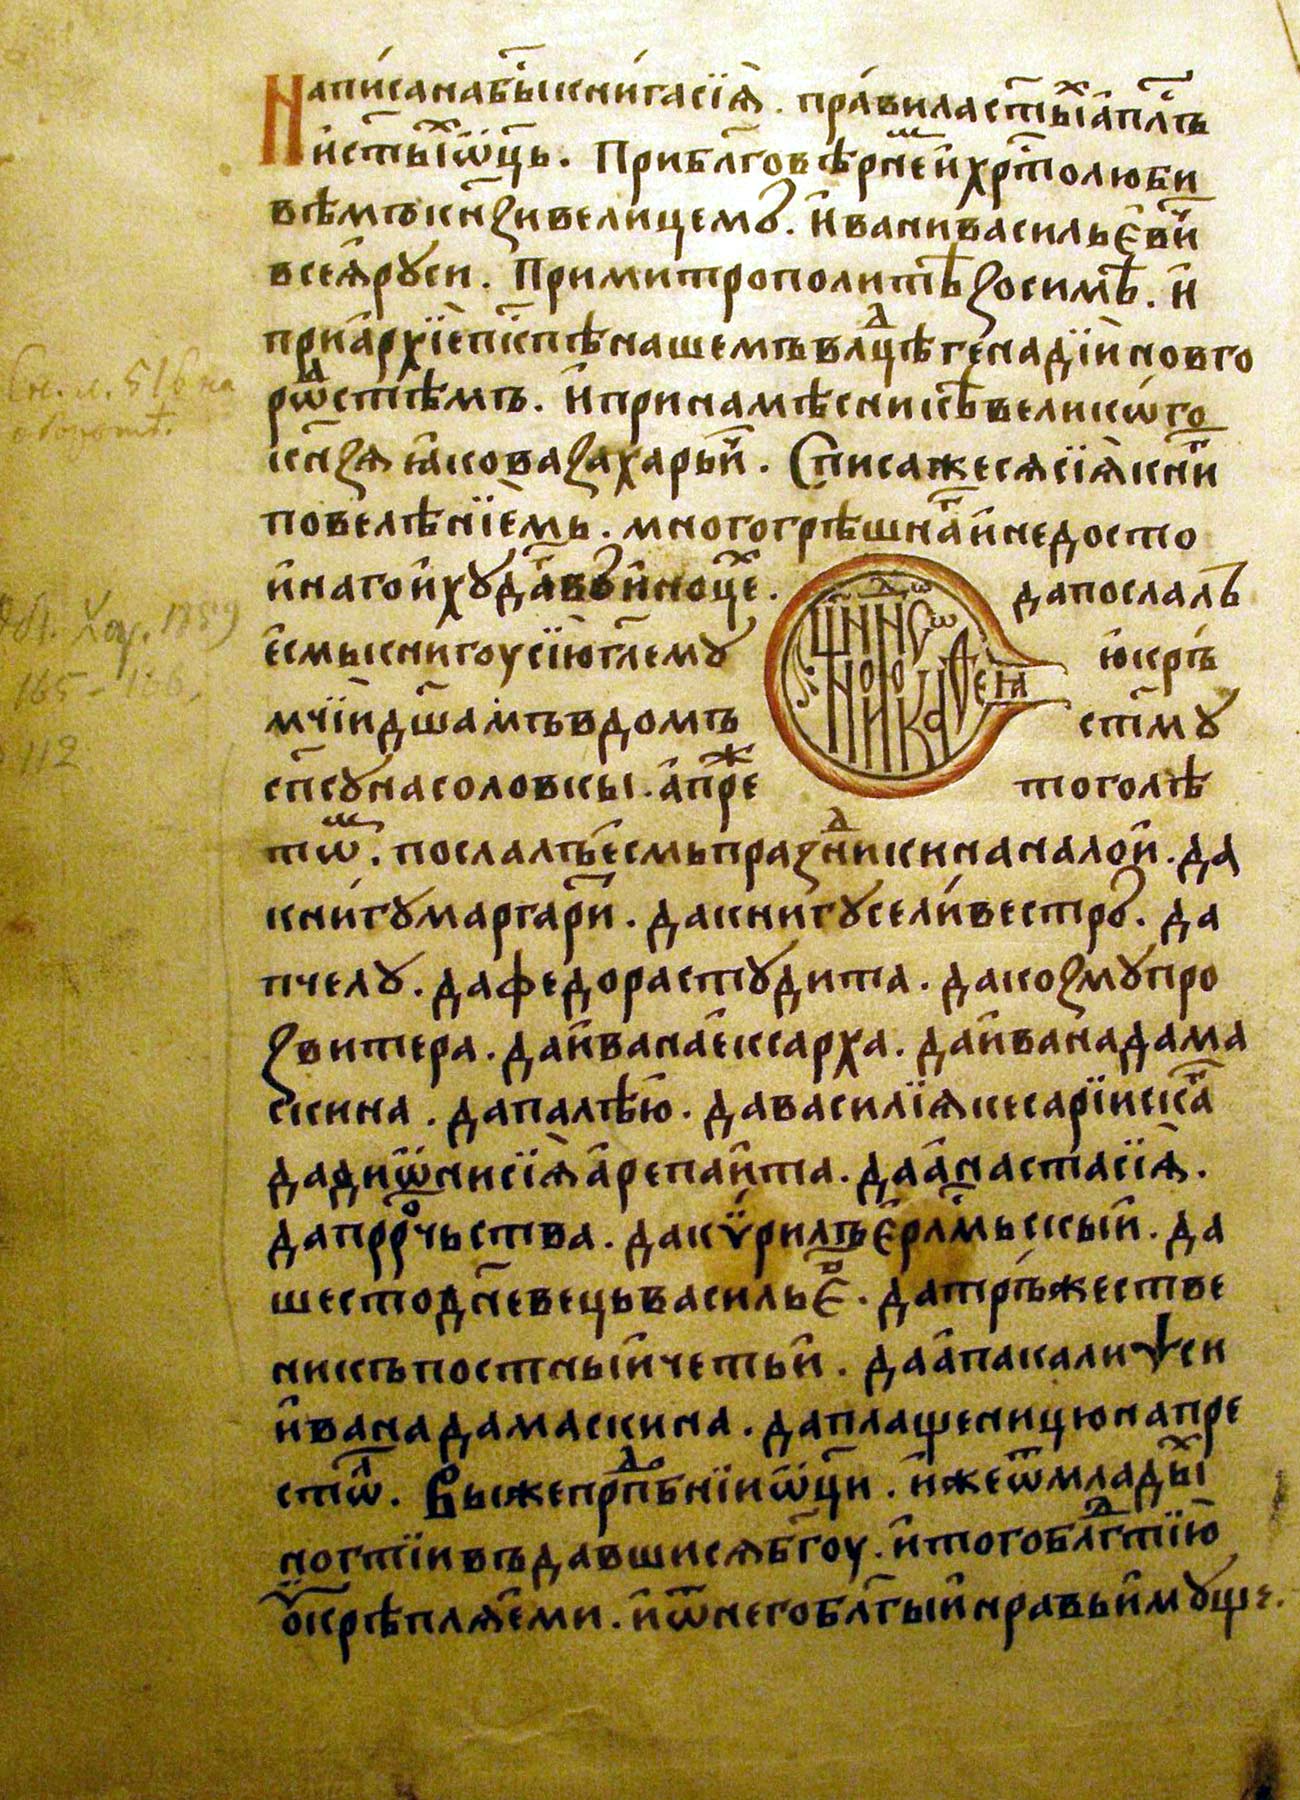 Написана бы́ книга сїѧ̀ . пра́вила ст҃ы апⷭ҇лъ
и҆ ст҃ы ѿц҃ь . При бл҃говѣрнеⷨ и҆ хрⷭ҇толюби
вѣмъ кн҃ѕи велицемꙋ . и҆вани васильє҆виⷱ
всеѧ̀ рꙋси . При митрополитѣ ѕосимѣ . и҆
при а҆рхїепⷭ҇кпѣ нашемъ влⷣцѣ генадїи новго
рѡⷣстѣмъ . и҆ при намѣсникѣ великѡго
кн҃ѕѧ ꙗ҆кова ѕахарьиⷱ . Списа же сѧ сїѧ̀ книⷢ
повелѣнїемь . многогрѣшнаⷢ и҆ недосто
и҆наго и҆ хꙋдаⷢ въ и҆ноцеⷯ .
да послалъ
є҆смь книгоу сїю гл҃емꙋ
ю҆ кръ
мчїи дш҃амъ в домъ
ст҃мꙋ
сп҃сꙋ на соловкы . а҆ преⷤ
того лѣ
тѡⷨ . послалъ є҆смь праѕⷣники на налои . да
книгꙋ маргариⷮ . да книгꙋ селивестрꙋ . да
пчелꙋ . да федора стꙋдита . да коѕмꙋ про
ѕвитера . да и҆вана є҆ксарха . да и҆вана дама
скина . да палѣю . да василїѧ кесарїискаⷢ
да дио҆нисїѧ̀ а҆репаита . да а҆настасїѧ̀ .
да прⷪ҇рчьства . да кѷрилъ є҆рл҃мьскый . да
шестодн҃евець васильєⷡ . да тръжестве
никъ постный четьи . да а҆пакалиѱси
и҆вана дамаскина . да плащеницю на пре
стѡⷧ . Вы же прпⷣбнїи ѿц҃и . и҆же ѿ млады
ногтїи въдавшисѧ бг҃оу . и҆ того блⷣгтїю
ᲂукрѣплѧеми . и҆ ѿ него бл҃гый нравь и҆мꙋще .